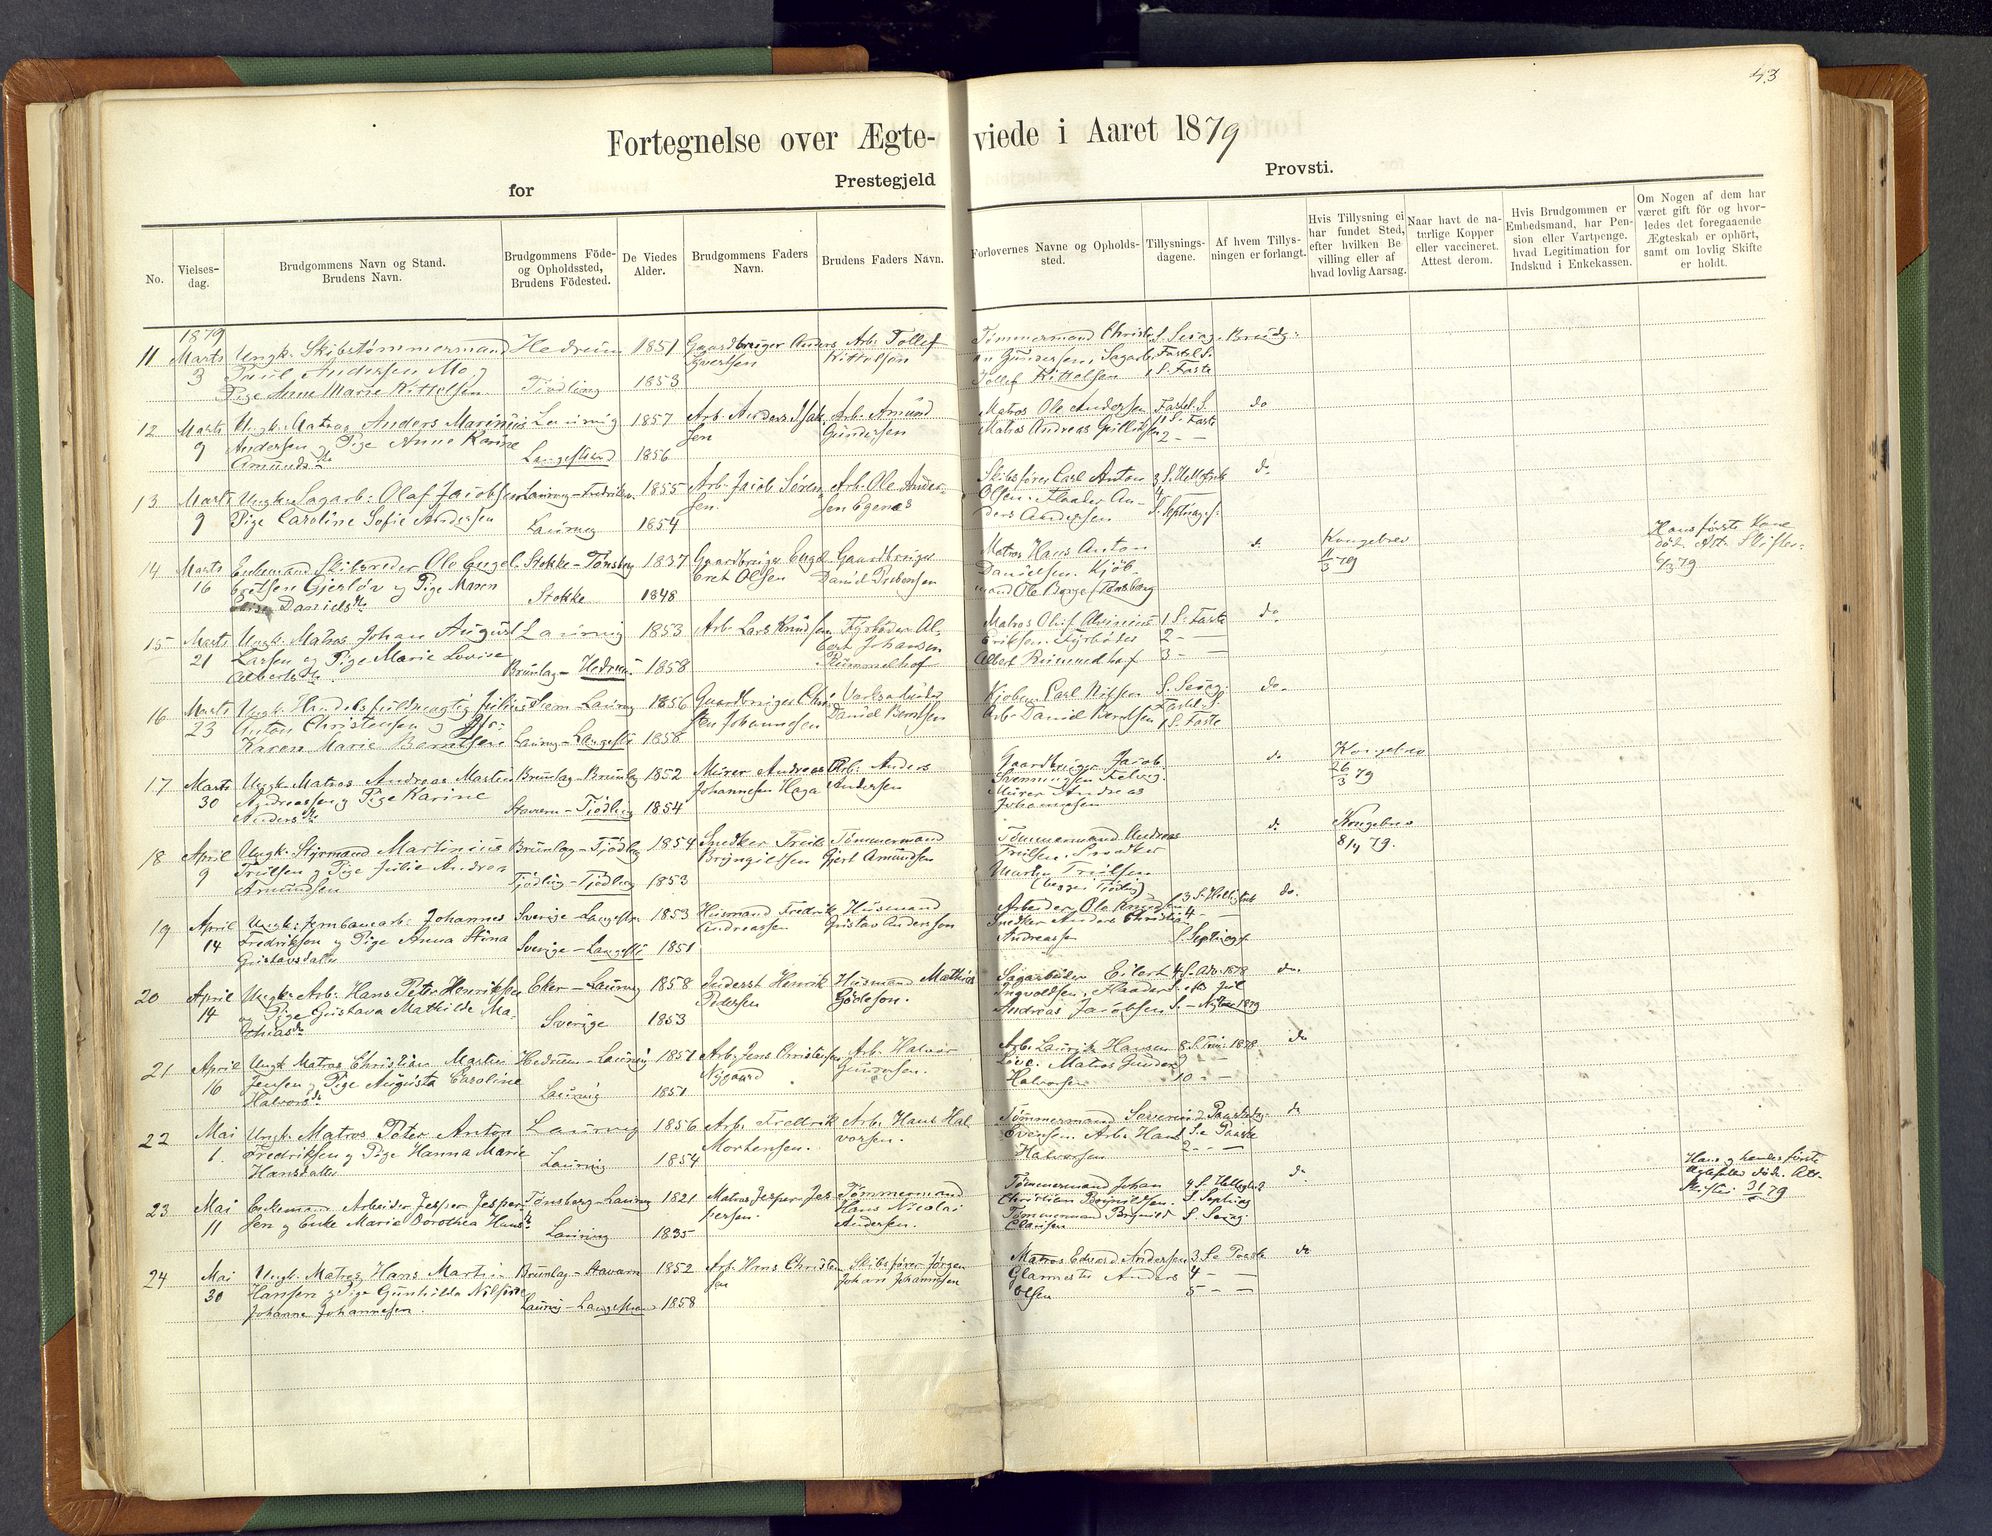 43
Fortegnelse over Ægte- viede i Aaret 1879
for Prestegjeld Provsti.
No.
Vielses-
dag.
Brudgommens Navn og Stand.
Brudens Navn.
Brudgommens Föde-
og Opholdssted,
Brudens Födested.
De Viedes
Alder.
Brudgommens Faders
Navn.
Brudens Faders Navn.
Forlovernes Navne og Opholds-
sted.
Tillysnings-
dagene.
Af hvem Tillys-
ningen er forlangt.
Hvis Tillysning ei
har fundet Sted,
efter hvilken Be-
villing eller af
hvad lovlig Aarsag.
Naar havt de na-
terlige Kopper
eller vaccineret.
Attest derom.
Hvis Brudgommen er
Embedsmand, har Pen-
sion eller Vartpenge,
hvad Legitimation for
Indskud i Enkekassen.
Om Nogen af dem har
været gift för og hvor-
ledes det foregaaende
Ægteskab er ophört,
samt om lovlig Skifte
er holdt.
1879
11 Marts Ungk. Skibstømmermand Hedrum 1851 Gaardbruger Anders Arb. Tollef Tømmermand Christi S. Sexag. Brudg.
3 Andersen Mo og Evertsen Kittelsen an Gundersen, Sagarb. Fastel. S.
Pige Anne Marie Kittelsen Tjødling 1853 Tollef Kittelsen 1 S. Faste
12 Marts Ungk. Matros Anders Marinius Laurvig 1857 Arb. Anders Isak- Arb. Amund Matros Ole Andersen Fastel. S. do
9 Andersen og Pige Anne Karine sen Gundersen Matros Andreas 1 S. Faste
Amundsdtr Langestrand 1856 2 - -
13 Marts Ungk. Sagarb. Olaf Jacobsen Laurvig - 1855 Arb. Jacob Søren- Arb. Ole Ander- Skibsfører Carl Anton 3 S. do
9 Pige Caroline Sofie Andersen sen. sen Egenes Olsen. Flaader An- 4
Laurvig 1854 ders Andersen S. Septuages.
14 Marts Enkemand Skibsreder Ole Engel- Stokke - Tønsberg 1837 Gaardbruger Engel- Gaardbruger Matros Hans Anton do Kongebrev Hans første Kone
16 bretsen Gjerløv og Pige Maren bret Olsen Daniel Danielsen. Kjøb- 11/3 79 død. Att. Skifter.
Elise Danielsdtr Stokke 1848 mand Ole Berge, Tønsberg 6/3 79
15 Marts Ungk. Matros Johan August Laurvig 1853 Arb. Lars Knudsen Fyrbøder Al- Matros Oluf Alvinius 1 S. Faste do
21 Larsen og Pige Marie Lovise bert Johansen Eriksen. Fyrbøder 2 -
Albertsdtr. Brunlag - Hedrum 1858 Rummelhof Albert Rummelhof 3 -
16 Marts Ungk. Handelsfuldmægtig Julius Hem - Laurvig 1856 Gaardbruger Chri- Kjøbm. Carl Nilsen S. Sexag. do.
23 Anton Christensen og sten Johannesen Daniel Berntsen Arb. Daniel Berntsen Fastel. S.
Karen Marie Berntsen Laurvig - Langestr. 1858 1 S. Faste
17 Marts Ungk. Matros Andreas Martin Brunlag - Brunlag 1852 Murer Andreas Arb. Anders Gaardbruger Jacob do Kongebrev
30 Andreassen og Pige Karine Johannesen Haga Andersen Svenningsen 26/3 79
Andersdtr Stavern - Tjødling 1854 Murer Andreas
Johannesen
18 April Ungk. Styrmand Martinius Brunlag - Tjødling 1854 Snedker Truls Tømmermand Tømmermand Andreas do Kongebrev
9 Trulsen og Pige Julie Andrea Bryngelsen Gjert Amundsen Trulsen, Snedker 8/4 79.
Amundsen Tjødling - Tjødling 1853 Martin Trulsen
(begge Tjødling)
19 April Ungk. Jernbanearb. Johannes Sverige - Langestr. 1853 Husmand Fredrik Husmand Arbeider Ole Knudsen 3 S. do.
14 Fredriksen og Pige Anna Stina Andreassen Gustav Andersson Snedker Anders Christian 4 -
Gustavsdatter Sverige - Langestr 1851 Andreassen S. Septuag.
20 April Ungk. Arb. Hans Peter Henriksen Eker - Laurvig 1858 Inderst Henrik Husmand Mathias Sagarbeider Eilert 4 S. Adv. 1878 do.
14 og Pige Gustava Mathilde Ma- Pedersen Ingvoldsen, Flaader S. eft. Jul
thiasdtr Sverige 1853 Andreas Jacobsen S. - Nytaar 1879
21 April Ungk. Matros Christian Martin Hedrum - Laurvig 1851 Arb. Jens Christensen Arb. Halvor Arb. Laurits Hansen 8 S. Trin. 1878 do
16 Jensen og Pige Augusta Caroline Nygaard Matros Gunder 9
Halvorsdtr Laurvig 1851 Halvorsen 10 - -
22 Mai Ungk. Matros Peter Anton Laurvig 1856 Arb. Fredrik Arb. Hans Hal- Tømmermand Severin 2 Paaskedag do
1. Fredriksen og Pige Hanna Marie Mortensen. vorsen. Evensen. Arb. Hans 1 S. e Paaske
Hansdatter Laurvig 1854 Halvorsen 2 - -
23 Mai Enkemand Arbeider Jesper Jesper- Tønsberg - Laurvig 1821 Matros Jesper Jes- Tømmermand Tømmermand Johan 4 S. do Hans og hendes første
11 sen og Enke Marie Dorothea Hansdtr persen. Hans Nicolai Christian S. Septuag Ægtefæller døde. Att.
Laurvig 1835 Andersen. Tømmermand S. Sexag. Skifte 31/ 79
24 Mai Ungk. Matros Hans Martin Brunlag - Stavern 1852 Arb. Hans Christen Skibsfører Jørgen Matros Edvard Andersen 3 S. e Paaske do
30 Hansen og Pige Gunhilda Nilsine sen Johan Johannesen Glarmester Anders 4 - -
Johanne Johannesen. Laurvig - Langestrand 1858 Olsen 5 - -